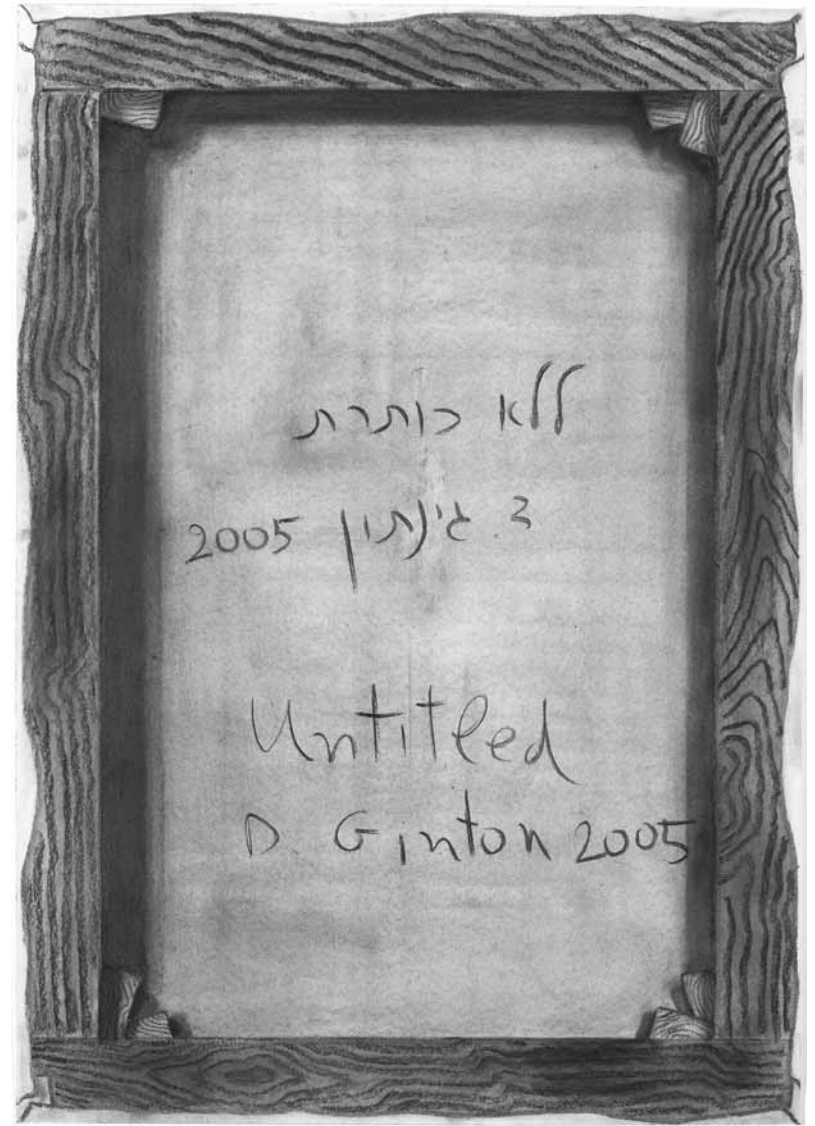 ללא כותרת
ד. גינתון 2005
Untitled
D. Ginton 2005